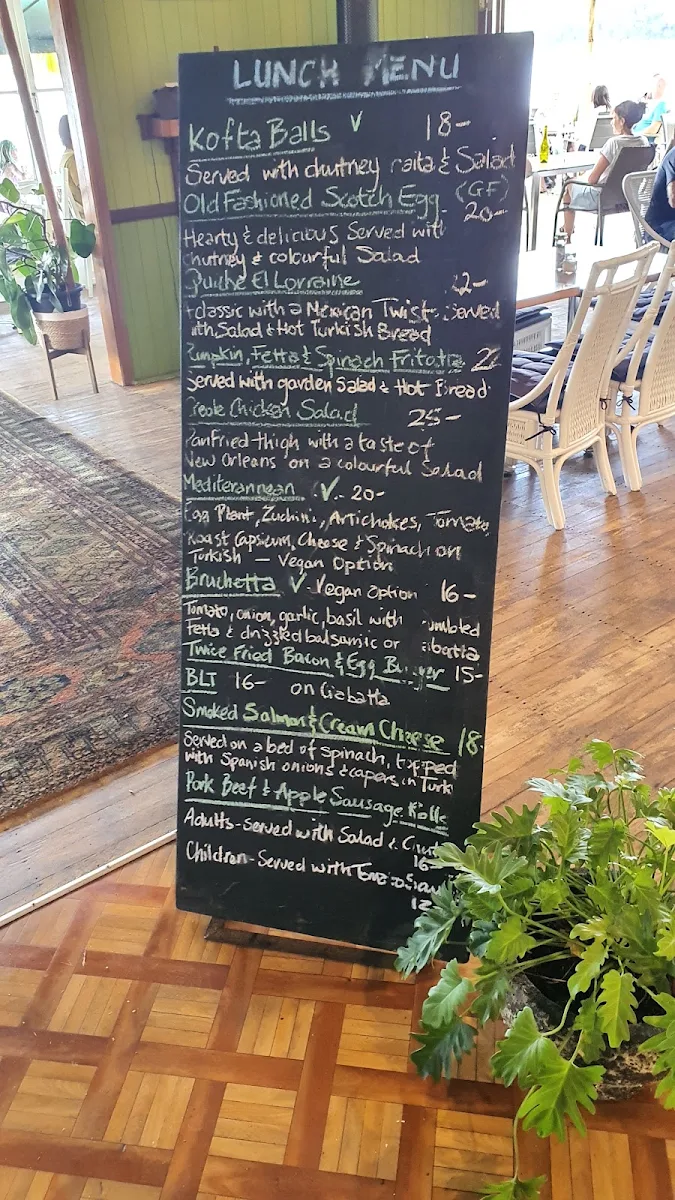 LUNCH MENU
Kofta Balls V 18-
Served with chutney raita & Salad
Old Fashioned Scotch Egg (GF) 20-
Hearty & delicious Served with
chutney & colourful Salad
Quiche El Lorraine 2-
classic with a Mexican Twist Served
with Salad & Hot Turkish Bread
Pumpkin, Fetta & Spinach Fritatta 22
Served with garden Salad & Hot Bread
Creole Chicken Salad 25-
Pan Fried thigh with a taste of
New Orleans on a colourful Salad
Mediterannean V. 20-
Egg Plant, Zuchini, Artichokes, Tomato
Roast Capsicum, Cheese & Spinach on
Turkish - Vegan Option
Bruchetta V Vegan option 16-
Tomato, onion, garlic, basil with
Fetta & drizzled balsamic or
Twice Fried Bacon & Egg Burger 15-
BLT 16- on Ciabatta
Smoked Salmon & Cream Cheese 18-
Served on a bed of spinach, topped
with Spanish onions & capers on Turk
Pork Beef & Apple Sausage Rolls
Adults - Served with Salad &
16-
Children - Served with
12